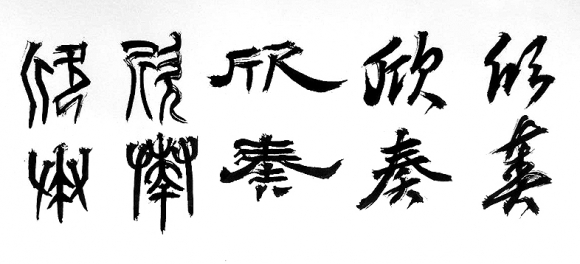 欣奏
欣奏
欣奏
欣奏
欣奏